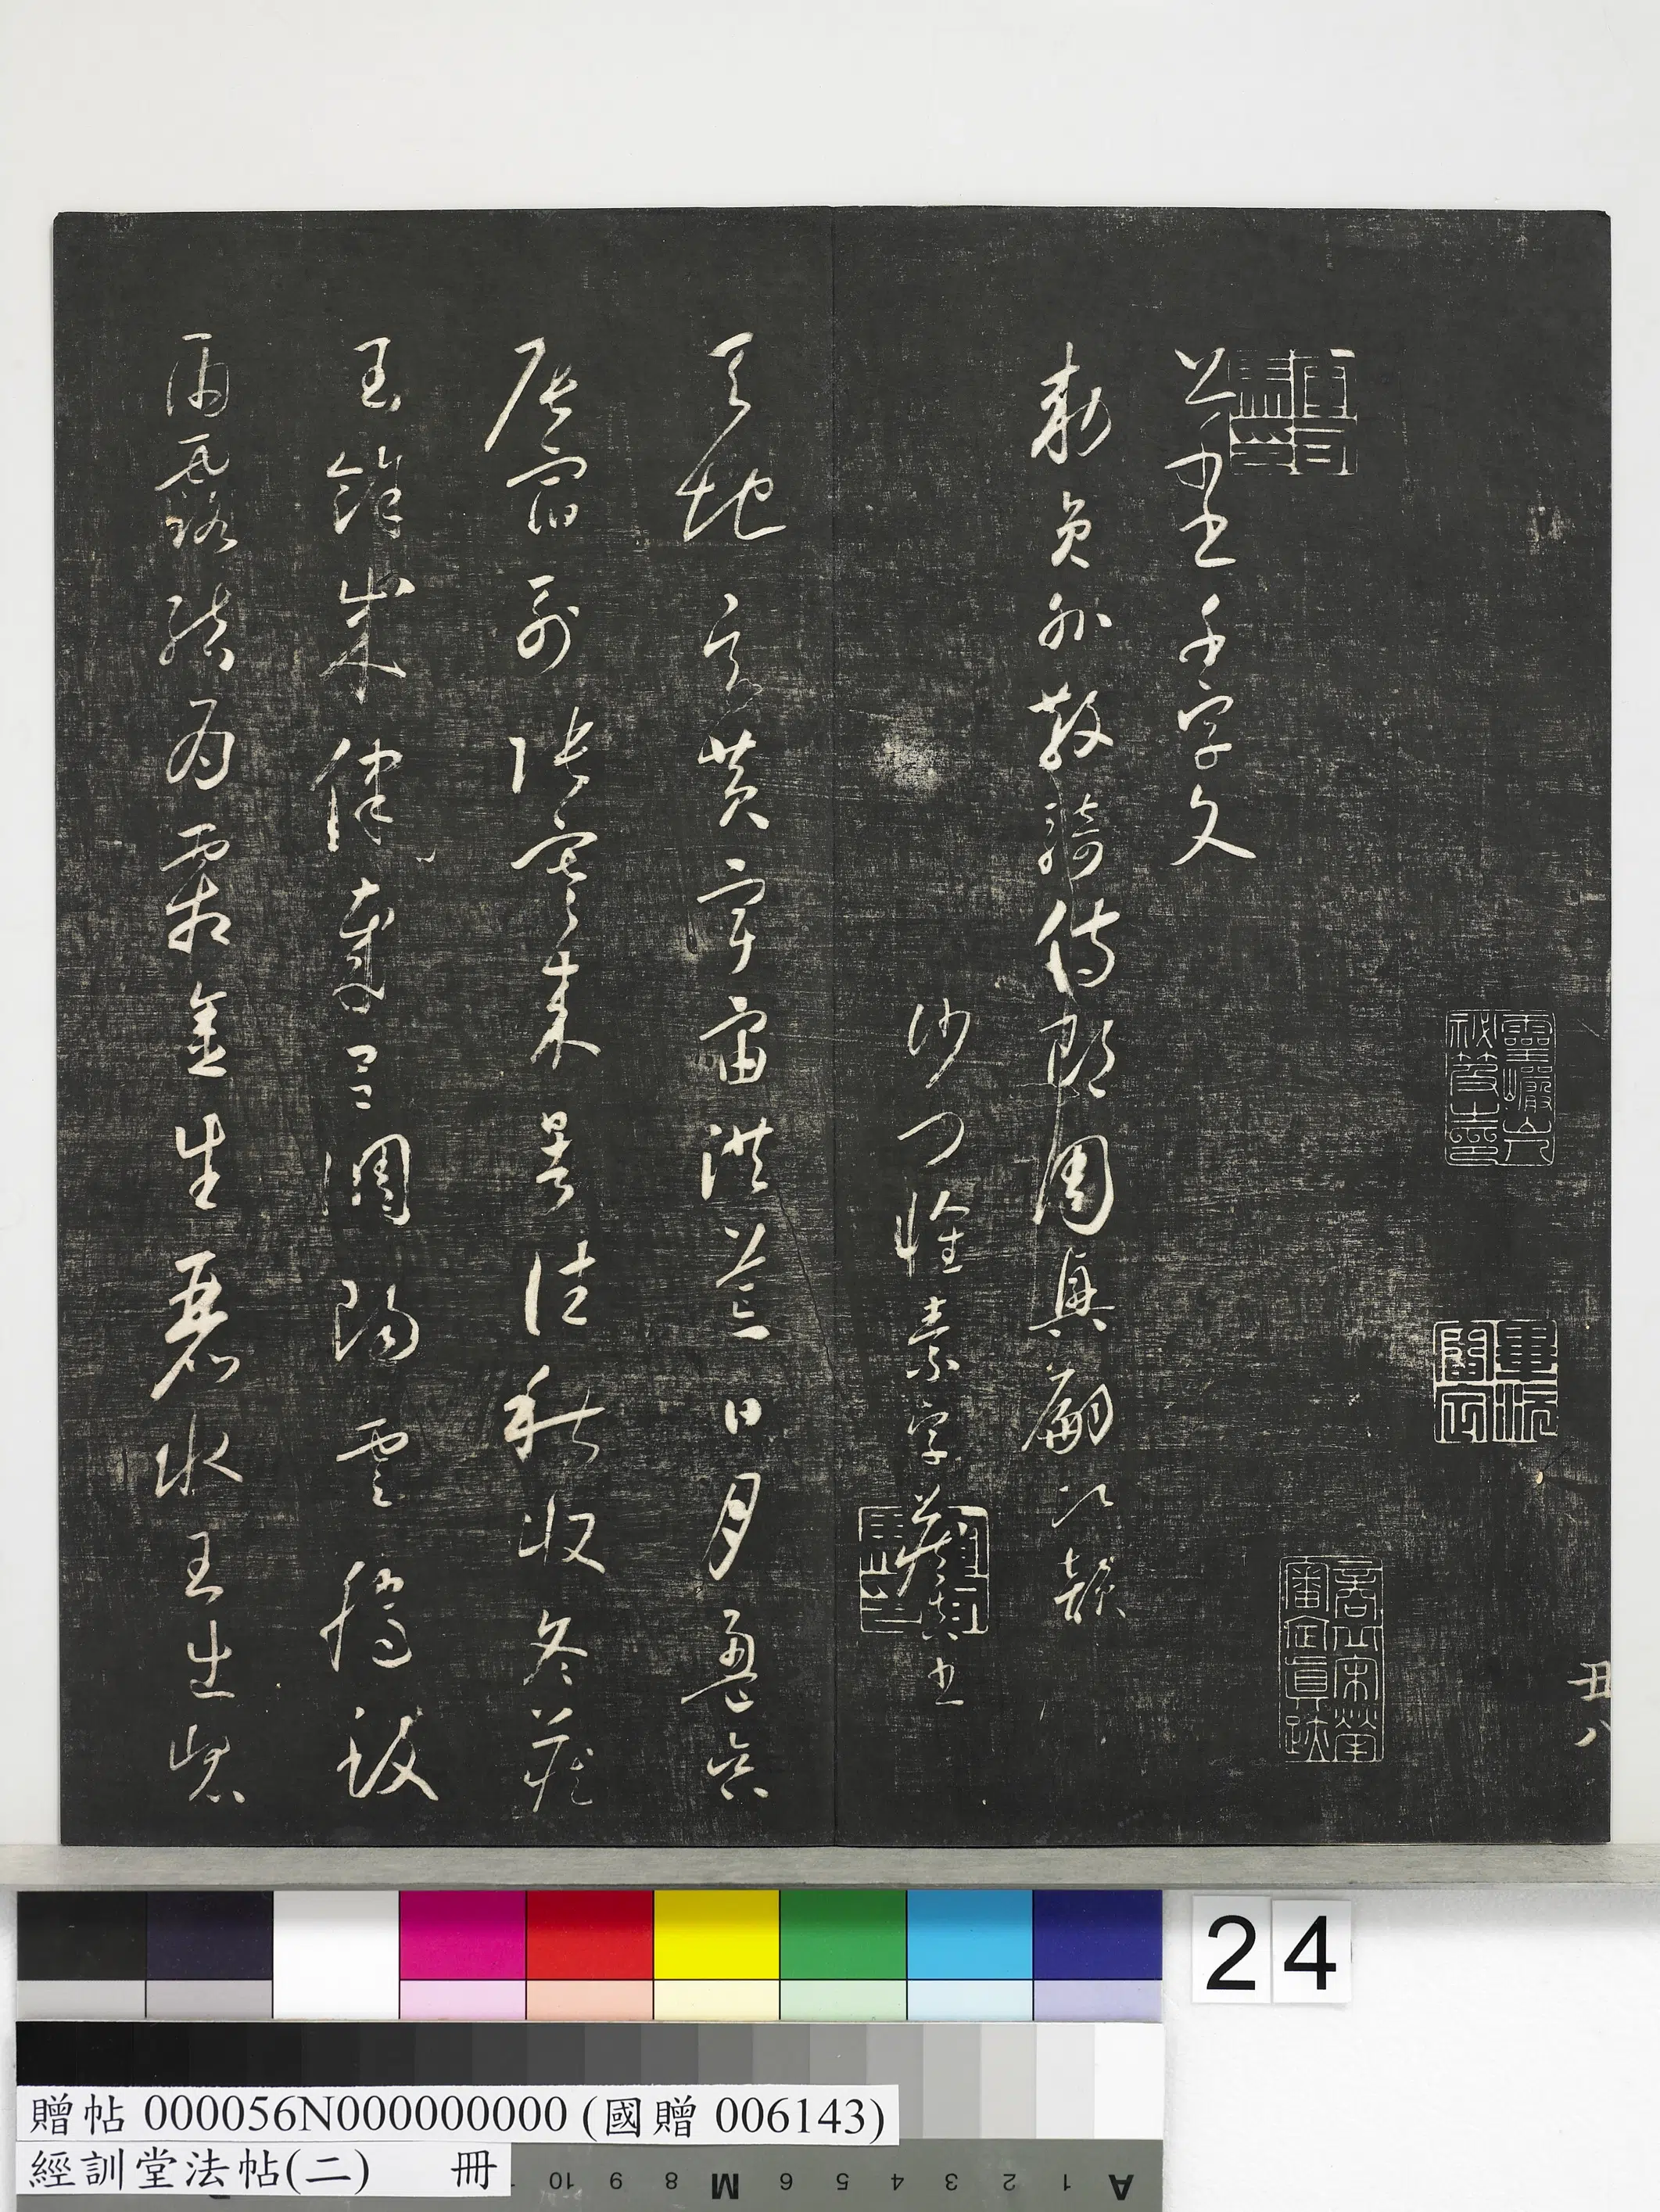 丑八
靈巖山人秘笈之印
畢沅審定
商丘宋犖審定真跡
草書千字文
敕員外散騎侍郎周興嗣次韻
沙門懷素字藏真書
天地玄黃宇宙洪荒日月盈昃
辰宿列張寒來暑往秋收冬藏
閏餘成歲律呂調陽雲騰致
雨露結為霜金生麗水玉出崑
24
贈帖 000056N000000000 (國贈 006143)
經訓堂法帖(二) 冊
10 9 8 M 6 5 4 3 2 1 A